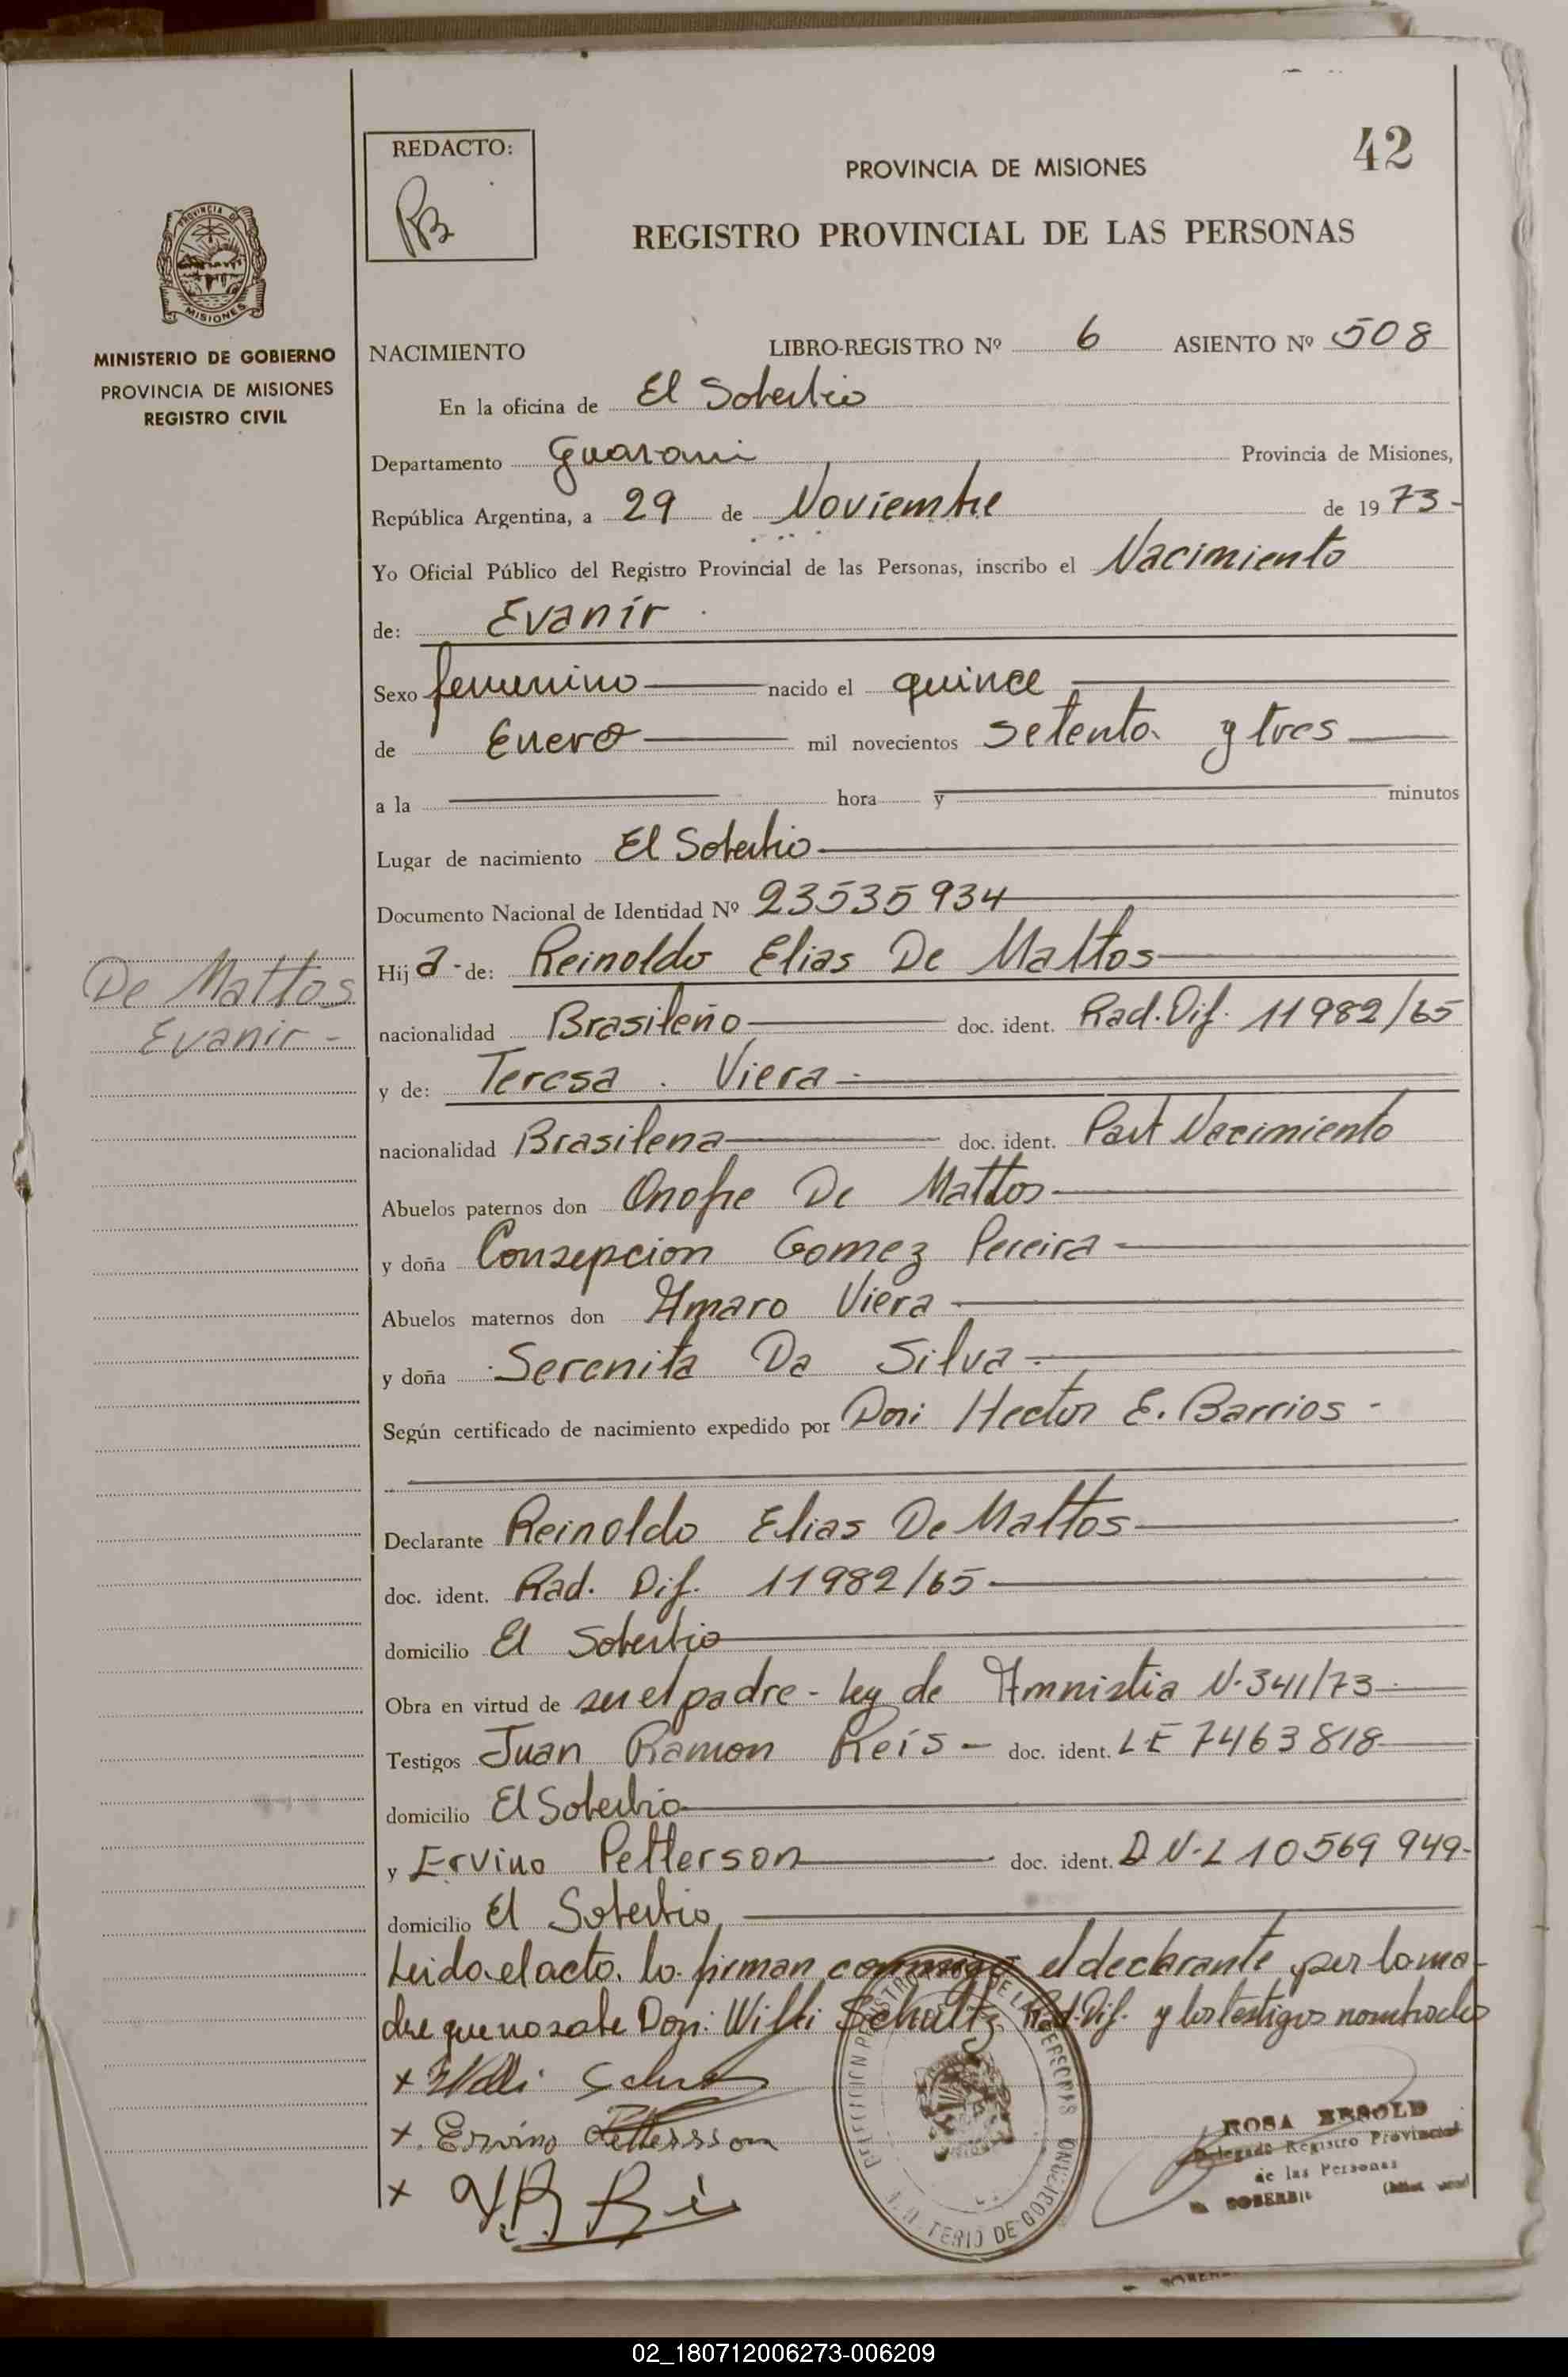 42
REDACTO:
RB
PROVINCIA DE MISIONES
REGISTRO PROVINCIAL DE LAS PERSONAS
PROVINCIA DE
MISIONES
MINISTERIO DE GOBIERNO
PROVINCIA DE MISIONES
REGISTRO CIVIL
NACIMIENTO LIBRO-REGISTRO Nº 6 ASIENTO Nº 508
En la oficina de El Soberbio
Departamento Guarani Provincia de Misiones,
República Argentina, a 29 de Noviembre de 1973-
Yo Oficial Público del Registro Provincial de las Personas, inscribo el Nacimiento
de: Evanir
Sexo femenino nacido el quince
de Enero mil novecientos setenta y tres
a la hora y minutos
Lugar de nacimiento El Soberbio
Documento Nacional de Identidad Nº 23535934
Hija de: Reinoldo Elias De Mattos
De Mattos
Evanir -
nacionalidad Brasileño doc. ident. Rad. Dif. 11982/65
y de: Teresa Viera
nacionalidad Brasilena doc. ident. Part Nacimiento
Abuelos paternos don Onofre De Mattos
y doña Consepcion Gomez Pereira
Abuelos maternos don Amaro Viera
y doña Serenita Da Silva
Según certificado de nacimiento expedido por Don: Hector E. Barrios -
Declarante Reinoldo Elias De Mattos
doc. ident. Rad. Dif. 11982/65
domicilio El Soberbio
Obra en virtud de ser el padre - Ley de Amnistia N. 341/73
Testigos Juan Ramon Reis - doc. ident. LE 7463818
domicilio El Soberbio
y Ervino Petterson doc. ident. D.N.I 10569949-
domicilio El Soberbio
Leida el acta, la firman conmigo el declarante, por la ma-
dre que no sabe Don: Willi Schultz Rad. Dif. y los testigos nombrados
x Willi
x Ervino Pettersson
x
MINISTERIO DE GOBIERNO
ROSA BESOLD
Delegada Registro Provincial
de las Personas
SOBERBIO
02_180712006273-006209